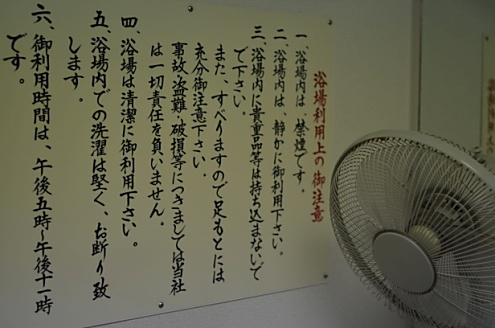 浴場利用上の御注意
一、浴場内は、禁煙です。
二、浴場内は、静かに御利用下さい。
三、浴場内に貴重品等は持ち込まないで
で下さい。
また、すべりますので足もとには
充分御注意下さい。
事故・盗難・破損等につきましては当社
は一切責任を負いません。
四、浴場は清潔に御利用下さい。
五、浴場内での洗濯は堅く、お断り致
します。
六、御利用時間は、午後五時〜午後十一時
です。